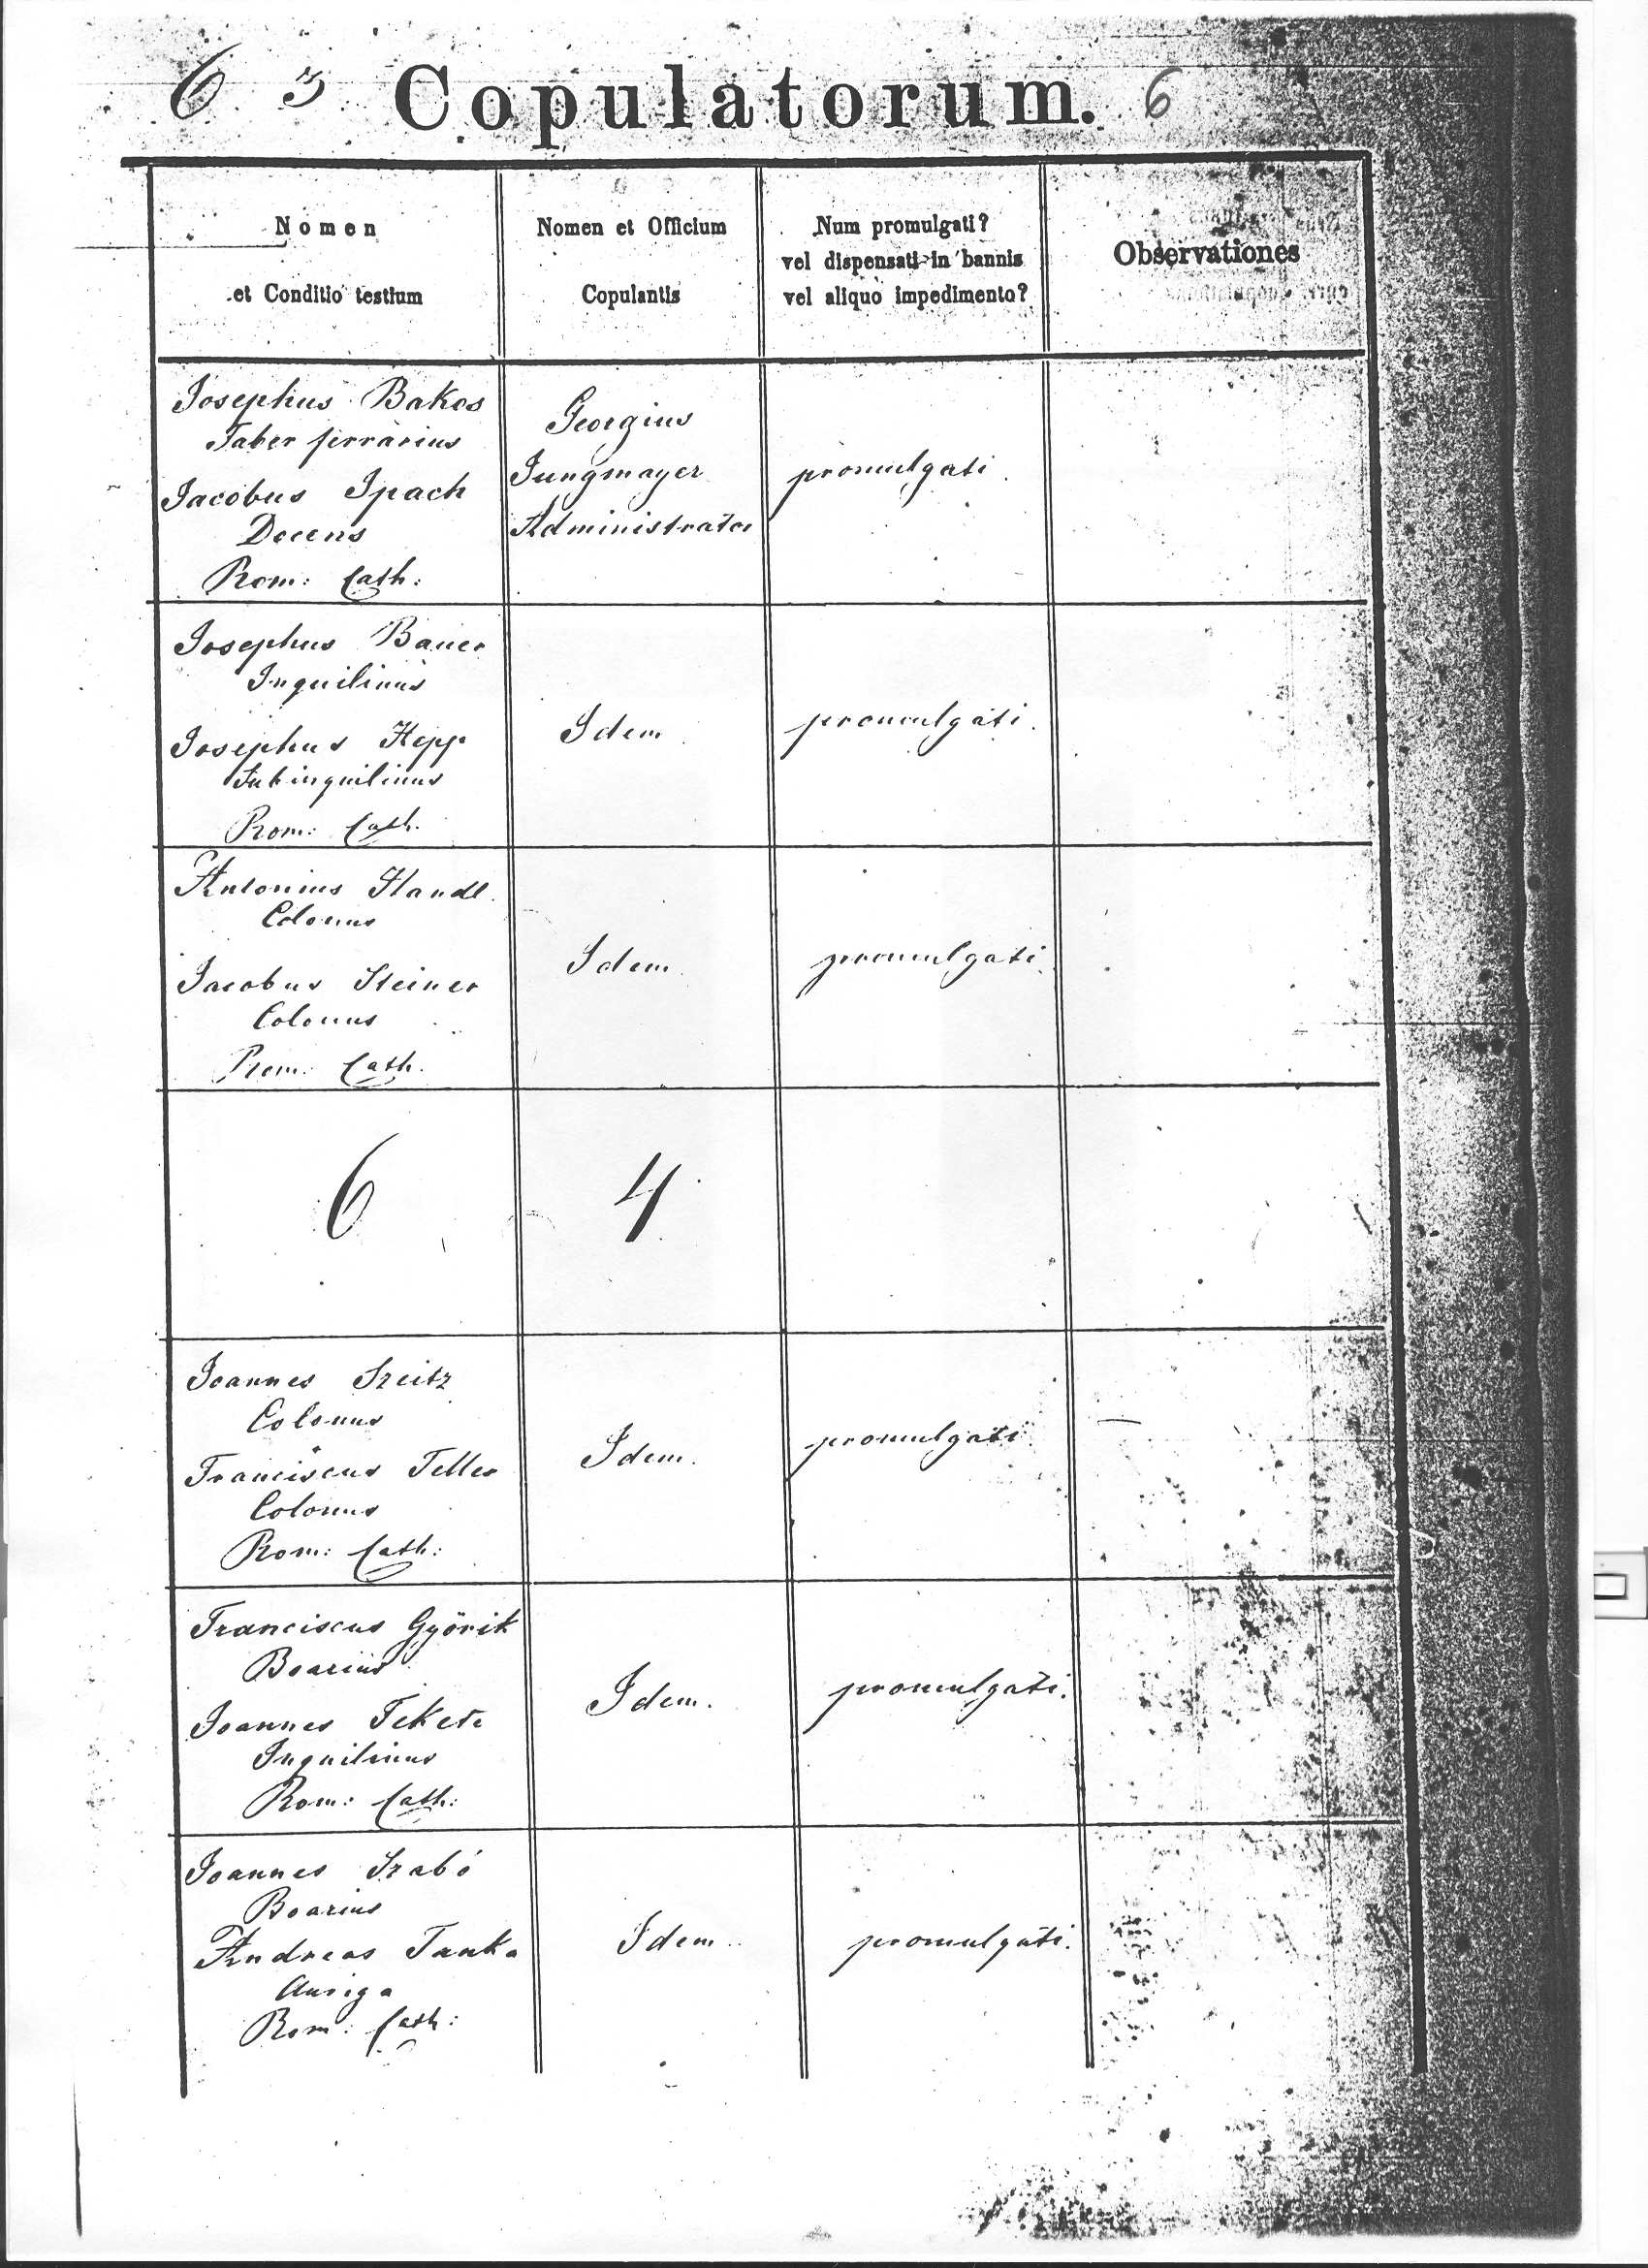 6 3 Copulatorum. 6
Nomen
et Conditio testium
Nomen et Officium
Copulantis
Num promulgati?
vel dispensati in bannis
vel aliquo impedimento?
Observationes
Josephus Bakos
Faber ferrarius
Jacobus Spach
Docens
Rom: Cath:
Georgius
Jungmayer
Administrator
promulgati
Josephus Bauer
Inquilinus
Josephus Hepp
Subinquilinus
Rom: Cath.
Idem
promulgati.
Antonius Handl.
Colonus
Jacobus Steiner
Colonus
Rom: Cath.
Idem
promulgati.
6
4
Joannes Szeitz
Colonus
Franciscus Feller
Colonus
Rom: Cath:
Idem.
promulgati.
Franciscus Györik
Boarius
Joannes Fekete
Inquilinus
Rom: Cath:
Idem.
promulgati.
Joannes Szabó
Boarius
Andreas Tanka
Auriga
Rom: Cath:
Idem.
promulgati.